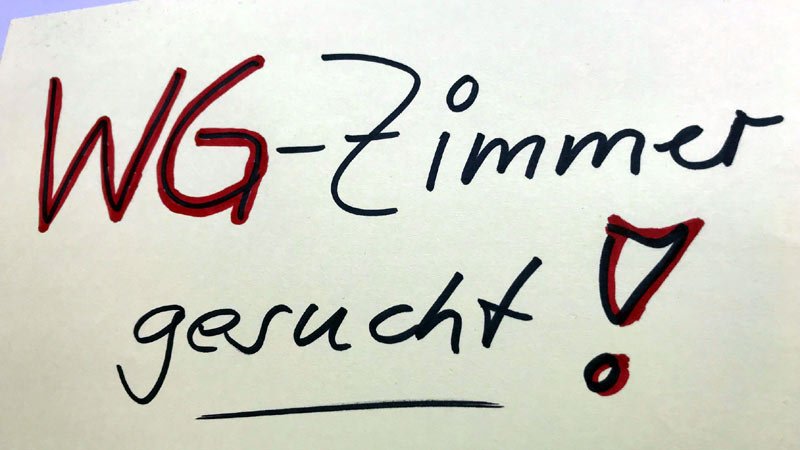 WG-Zimmer
gesucht!